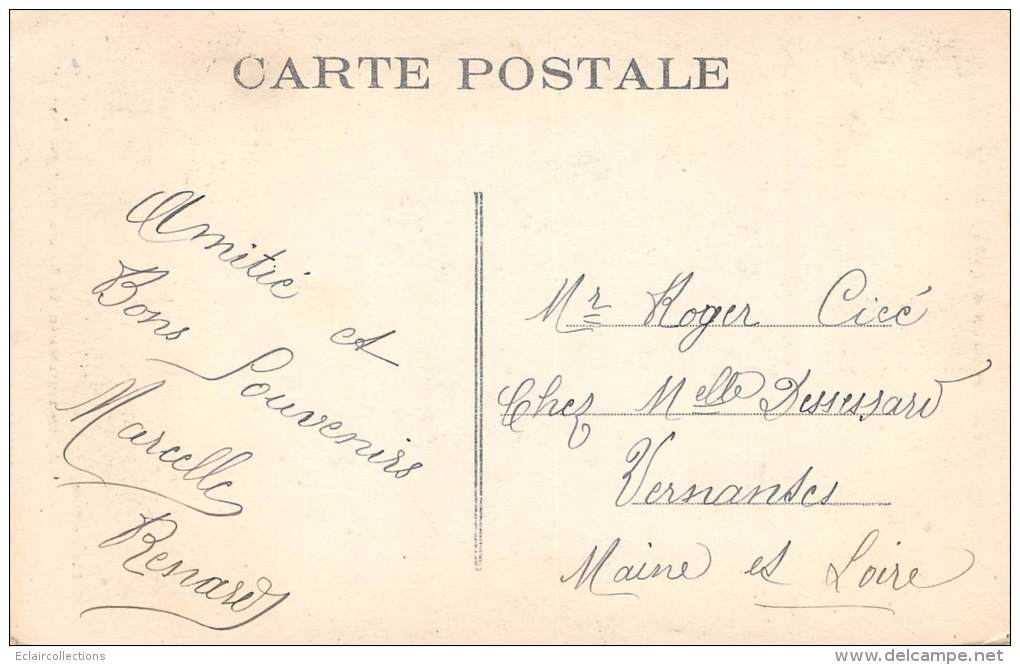 CARTE POSTALE
Amitié et
Bons Souvenirs
Marcelle
Renard
Mr Roger Cicé
Chez Melle Dessessard
Vernantes
Maine et Loire
Eclaircollections
www.delcampe.net